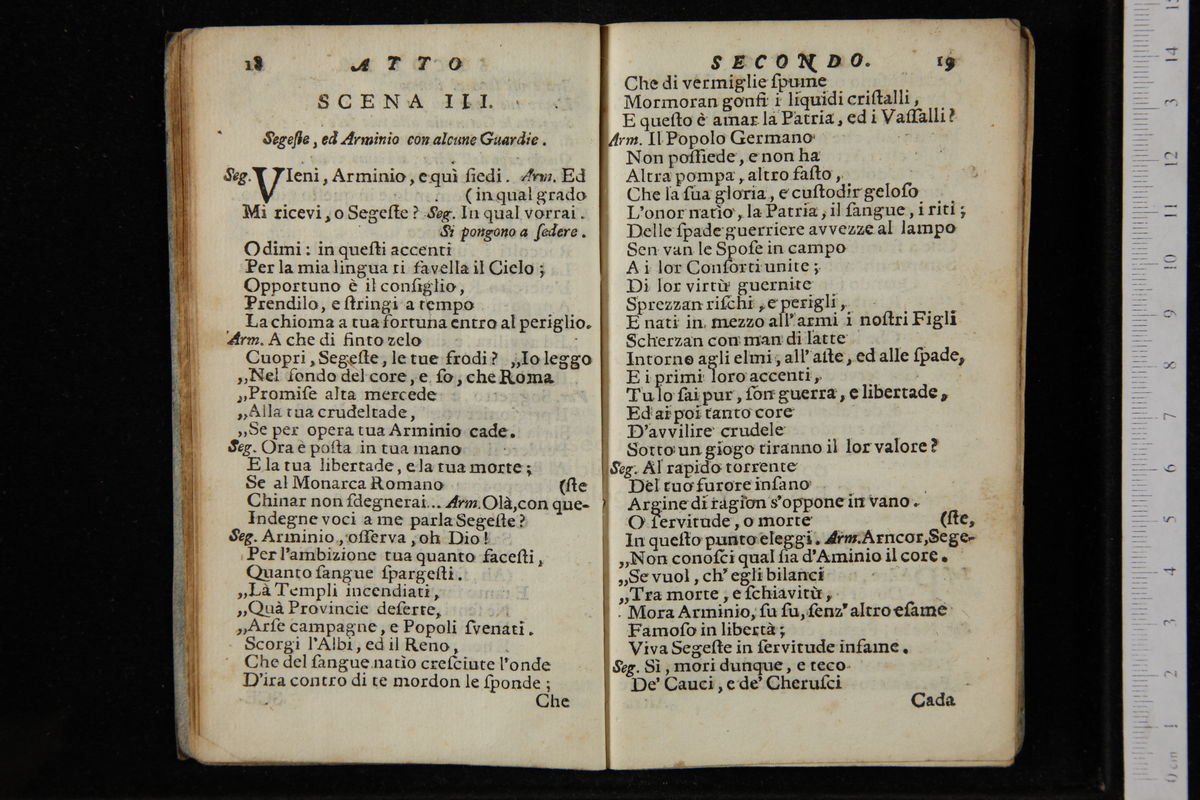 18 ATTO
SCENA III.
Segeſte, ed Arminio con alcune Guardie.
Seg. VIeni, Arminio, e quì ſiedi. Arm. Ed
(in qual grado
Mi ricevi, o Segeſte? Seg. In qual vorrai.
Si pongono a ſedere.
Odimi: in queſti accenti
Per la mia lingua ti favella il Cielo;
Opportuno è il conſiglio,
Prendilo, e ſtringi a tempo
La chioma a tua fortuna entro al periglio.
Arm. A che di finto zelo
Cuopri, Segeſte, le tue frodi? „Io leggo
„Nel fondo del core, e ſo, che Roma
„Promiſe alta mercede
„Alla tua crudeltade,
„Se per opera tua Arminio cade.
Seg. Ora è poſta in tua mano
E la tua libertade, e la tua morte;
Se al Monarca Romano (ſte
Chinar non ſdegnerai... Arm. Olà, con que-
Indegne voci a me parla Segeſte?
Seg. Arminio, oſſerva, oh Dio!
Per l'ambizione tua quanto faceſti,
Quanto ſangue ſpargeſti.
„Là Templi incendiati,
„Quà Provincie deſerte,
„Arſe campagne, e Popoli ſvenati.
Scorgi l'Albi, ed il Reno,
Che del ſangue natìo creſciute l'onde
D'ira contro di te mordon le ſponde;
Che
SECONDO. 19
Che di vermiglie ſpume
Mormoran gonfi i liquidi criſtalli,
E queſto è amar la Patria, ed i Vaſſalli?
Arm. Il Popolo Germano
Non poſſiede, e non ha
Altra pompa, altro faſto,
Che la ſua gloria, e cuſtodir geloſo
L'onor natìo, la Patria, il ſangue, i riti;
Delle ſpade guerriere avvezze al lampo
Sen van le Spoſe in campo
A i lor Conſorti unite;
Di lor virtù guernite
Sprezzan riſchi, e perigli,
E nati in mezzo all'armi i noſtri Figli
Scherzan con man di latte
Intorno agli elmi, all'aſte, ed alle ſpade,
E i primi loro accenti,
Tu lo ſai pur, ſon guerra, e libertade,
Ed ai poi tanto core
D'avvilire crudele
Sotto un giogo tiranno il lor valore?
Seg. Al rapido torrente
Del tuo furore inſano
Argine di ragion s'oppone in vano.
O ſervitude, o morte (ſte,
In queſto punto eleggi. Arm. Arncor, Sege-
„Non conoſci qual ſia d'Aminio il core.
„Se vuol, ch'egli bilanci
„Tra morte, e ſchiavitù,
Mora Arminio, ſu ſu, ſenz'altro eſame
Famoſo in libertà;
Viva Segeſte in ſervitude infame.
Seg. Sì, mori dunque, e teco
De' Cauci, e de' Cheruſci
Cada
0 cm 1 2 3 4 5 6 7 8 9 10 11 12 13 14 15